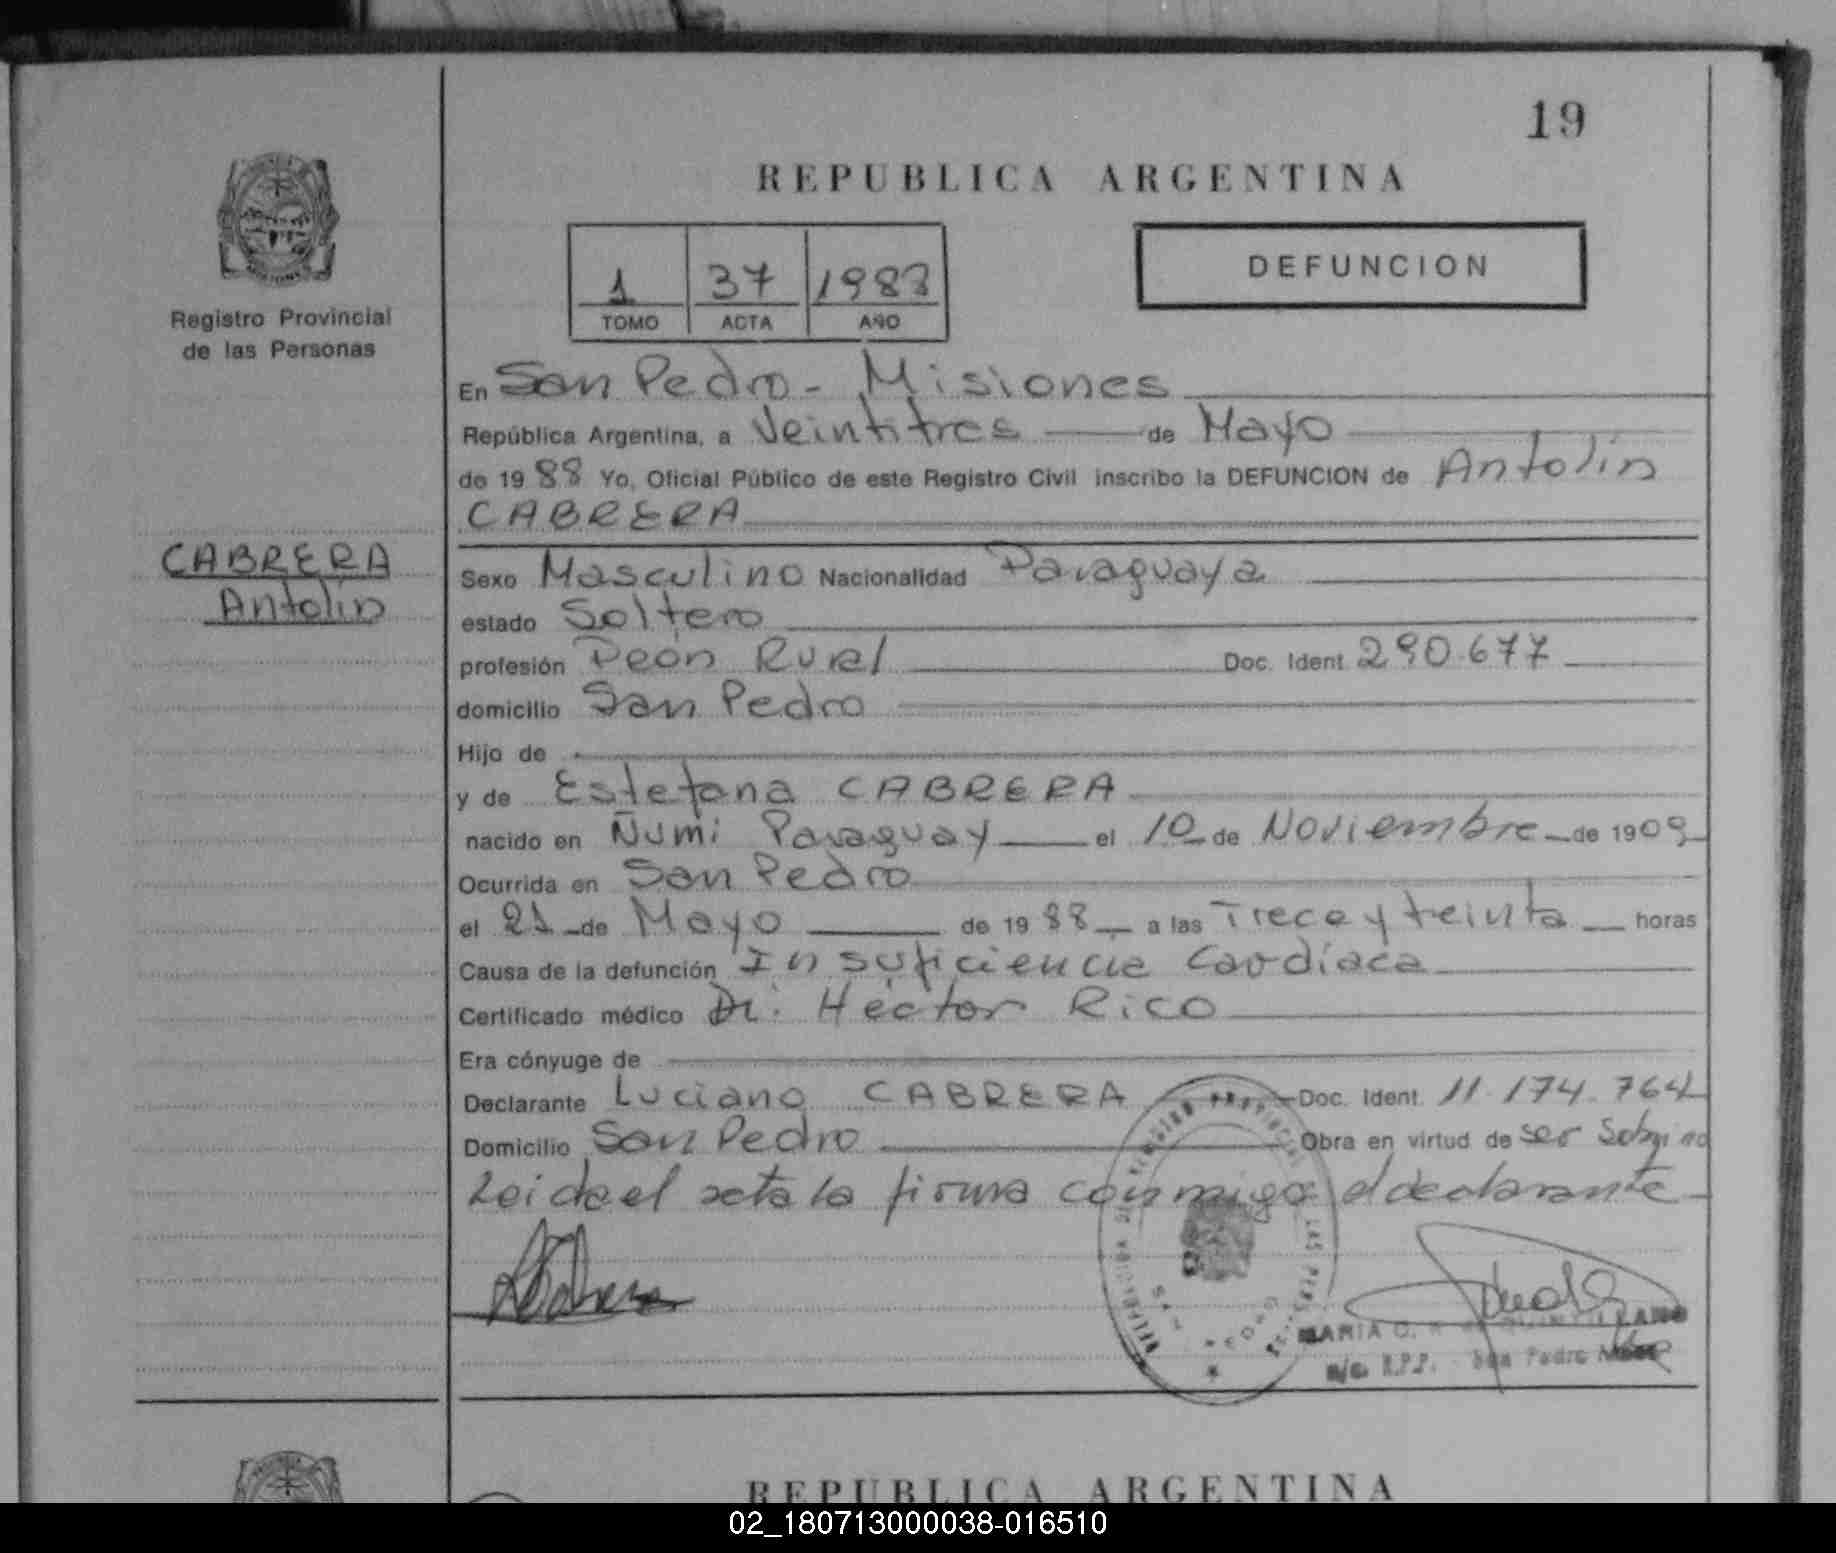 19
REPUBLICA ARGENTINA
1 37 1988
TOMO ACTA AÑO
DEFUNCION
Registro Provincial
de las Personas
En San Pedro - Misiones
República Argentina, a Veintitres de Mayo
de 1988 Yo, Oficial Público de este Registro Civil inscribo la DEFUNCION de Antolín
CABRERA
CABRERA
Antolín
Sexo Masculino Nacionalidad Paraguaya
estado Soltero
profesión Peón Rural Doc. Ident. 290.677
domicilio San Pedro
Hijo de
y de Estefana CABRERA
nacido en Ñumi Paraguay el 10 de Noviembre de 1909
Ocurrida en San Pedro
el 21 de Mayo de 1988 a las Trece y treinta horas
Causa de la defunción Insuficiencia Cardíaca
Certificado médico Dr. Héctor Rico
Era cónyuge de
Declarante Luciano CABRERA Doc. Ident. 11.174.764
Domicilio San Pedro Obra en virtud de ser Sobrino
Leida el acta la firma conmigo el declarante
MARIA
San Pedro
REPUBLICA ARGENTINA
02_180713000038-016510